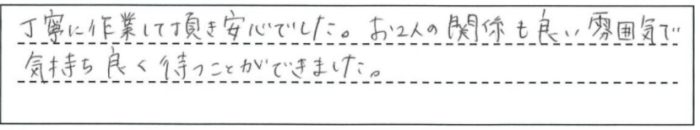 丁寧に作業して頂き安心でした。お2人の関係も良い雰囲気で
気持ち良く待つことができました。